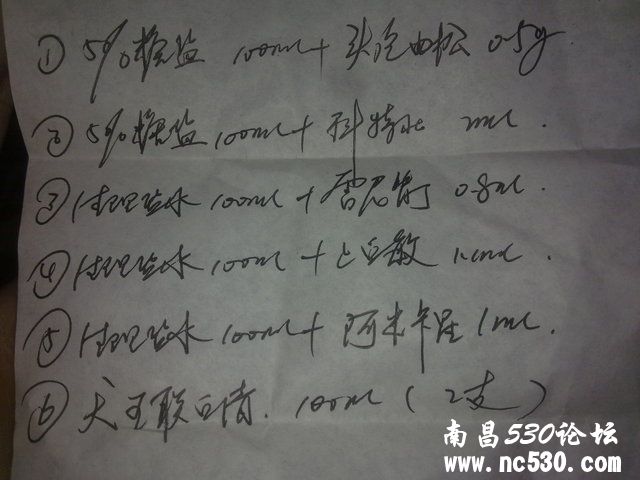 ① 5%糖盐 100ml + 头孢曲松 0.5g
② 5%糖盐 100ml + 科特壮 2ml.
③ 生理盐水 100ml + 雷尼替丁 0.8ml.
④ 生理盐水 100ml + 止白敏
⑤ 生理盐水 100ml + 阿米卡星 1ml.
⑥ 犬五联血清. 100ml (2支)
南昌530论坛
www.nc530.com